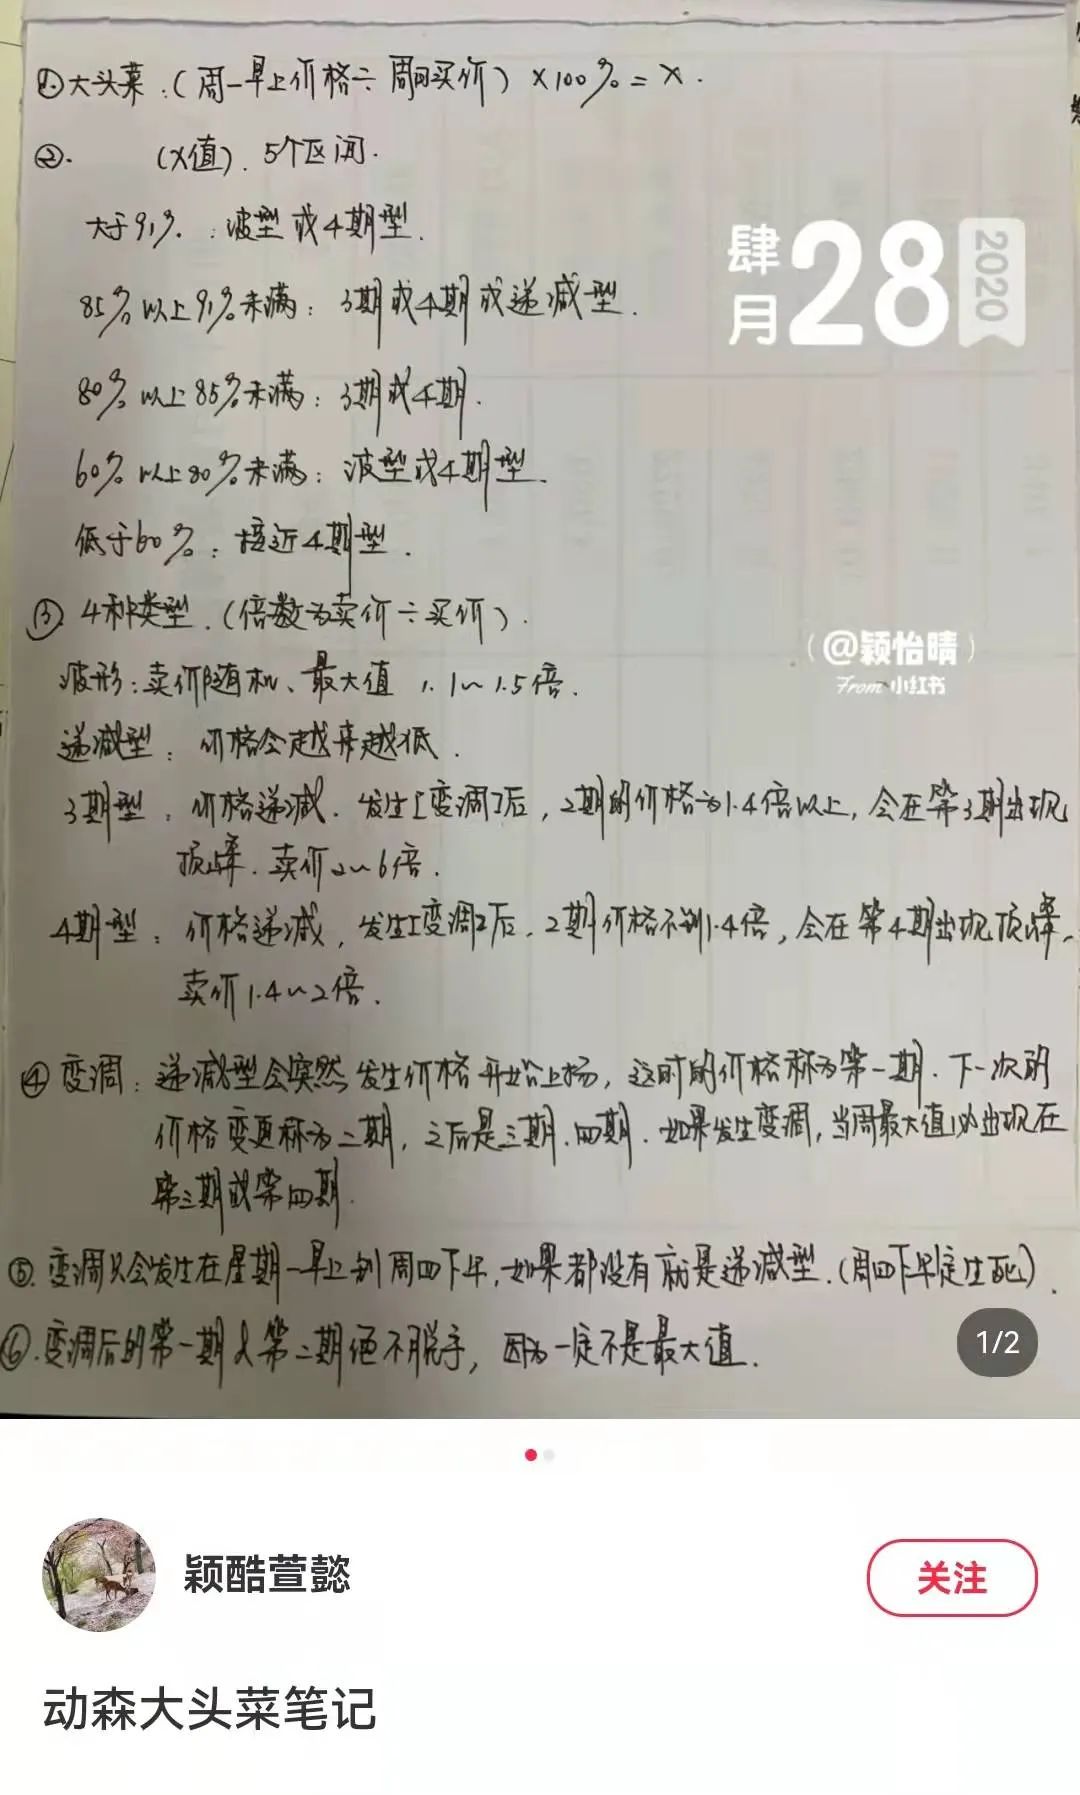 ①大头菜：(周一早上价格÷周日买价）×100％=X.
②. (X值). 5个区间.
大于91％. ：波型或4期型.
肆月28 2020
85％以上91％未满：3期或4期或递减型.
80％以上85％未满：3期或4期.
60％以上80％未满：波型或4期型.
低于60％：接近4期型.
③ 4种类型.（倍数为卖价÷买价).
(@颖怡晴)
From 小红书
波形：卖价随机、最大值 1.1～1.5倍.
递减型：价格会越来越低.
3期型：价格递减.发生[变调]后,2期的价格为1.4倍以上,会在第3期出现
顶峰.卖价2～6倍.
4期型：价格递减,发生[变调]后,2期价格不到1.4倍,会在第4期出现顶峰,
卖价1.4～2倍.
④变调：递减型会突然发生价格开始上扬,这时的价格称为第一期.下一次的
价格变更称为二期,之后是三期.四期.如果发生变调,当周最大值必出现在
第三期或第四期.
⑤.变调只会发生在星期一早上到周四下午,如果都没有就是递减型.(周四下午定生死).
⑥.变调后的第一期&第二期便不脱手,因为一定不是最大值.
1/2
颖酷萱懿
关注
动森大头菜笔记